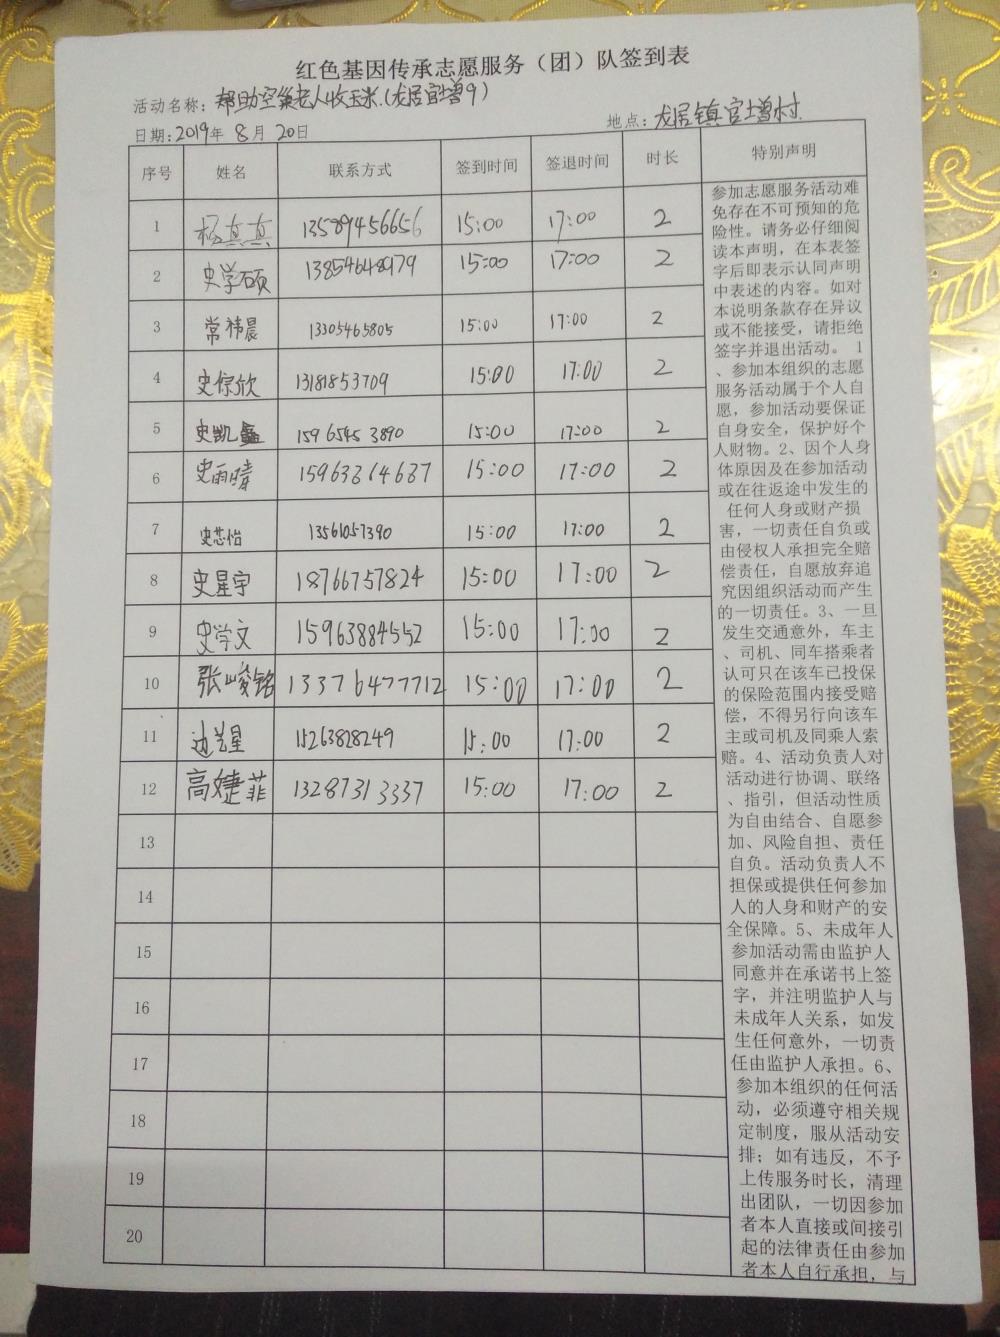 红色基因传承志愿服务（团）队签到表
活动名称：帮助空巢老人收玉米（龙居官增9）
日期：2019年 8月 20日 地点：龙居镇官增村
序号 姓名 联系方式 签到时间 签退时间 时长 特别声明
1 杨真真 13589456656 15:00 17:00 2
2 史学硕 13854648979 15:00 17:00 2
3 常祎晨 13305465805 15:00 17:00 2
4 史倧欣 13181853709 15:00 17:00 2
5 史凯鑫 15965453890 15:00 17:00 2
6 史雨晴 15963364637 15:00 17:00 2
7 史芯怡 13561057390 15:00 17:00 2
8 史星宇 18766757824 15:00 17:00 2
9 史学文 15963884552 15:00 17:00 2
10 张峻铭 13376477712 15:00 17:00 2
11 边艺星 15263828249 15:00 17:00 2
12 高婕菲 13287313337 15:00 17:00 2
13
14
15
16
17
18
19
20
参加志愿服务活动难
免存在不可预知的危
险性。请务必仔细阅
读本声明，在本表签
字后即表示认同声明
中表述的内容。如对
本说明条款存在异议
或不能接受，请拒绝
签字并退出活动。 1
、参加本组织的志愿
服务活动属于个人自
愿，参加活动要保证
自身安全，保护好个
人财物。2、因个人身
体原因及在参加活动
或在往返途中发生的
任何人身或财产损
害，一切责任自负或
由侵权人承担完全赔
偿责任，自愿放弃追
究因组织活动而产生
的一切责任。3、一旦
发生交通意外，车主
、司机、同车搭乘者
认可只在该车已投保
的保险范围内接受赔
偿，不得另行向该车
主或司机及同乘人索
赔。4、活动负责人对
活动进行协调、联络
、指引，但活动性质
为自由结合、自愿参
加、风险自担、责任
自负。活动负责人不
担保或提供任何参加
人的人身和财产的安
全保障。5、未成年人
参加活动需由监护人
同意并在承诺书上签
字，并注明监护人与
未成年人关系，如发
生任何意外，一切责
任由监护人承担。6、
参加本组织的任何活
动，必须遵守相关规
定制度，服从活动安
排；如有违反，不予
上传服务时长，清理
出团队，一切因参加
者本人直接或间接引
起的法律责任由参加
者本人自行承担，与